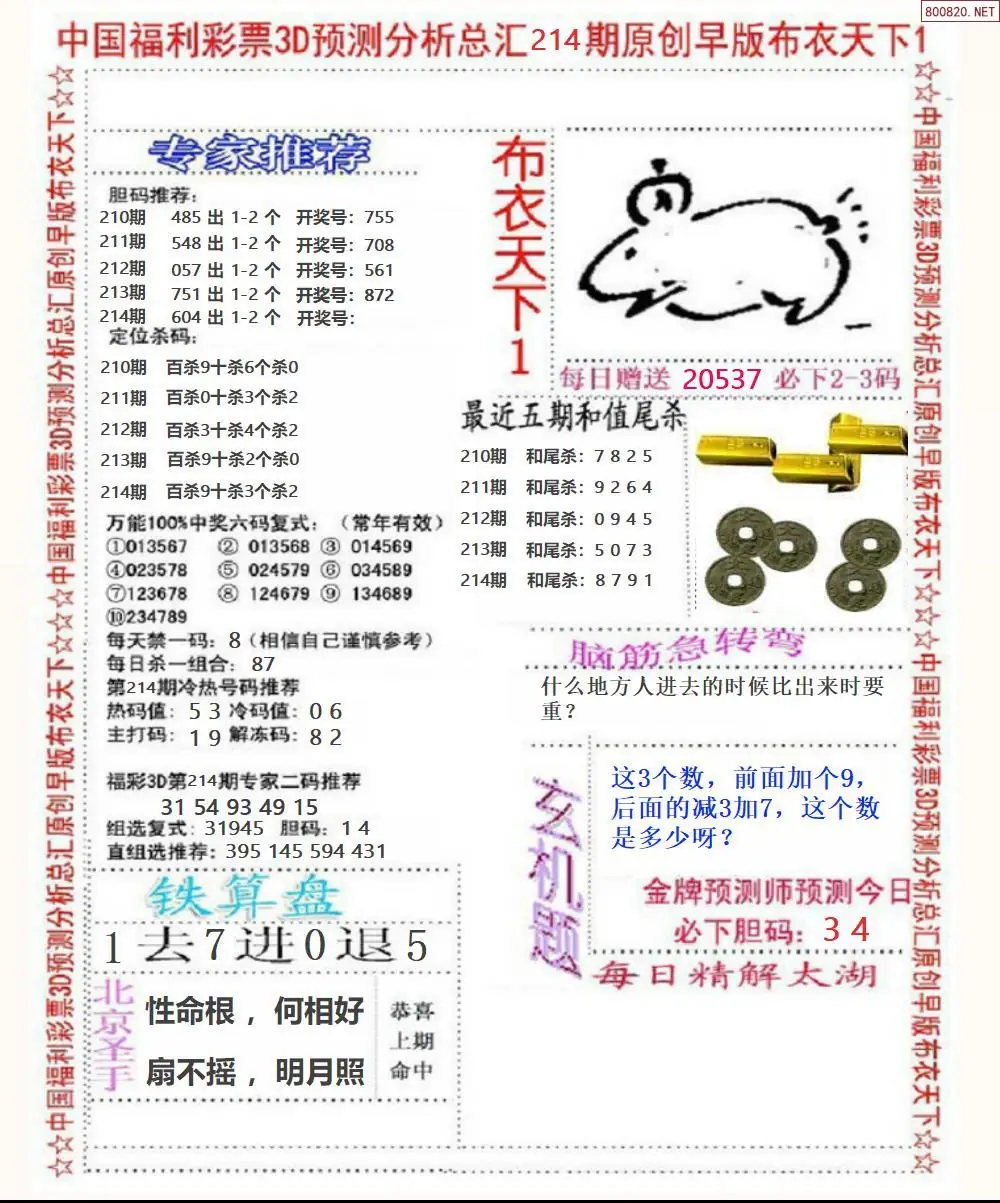 800820.NET
中国福利彩票3D预测分析总汇214期原创早版布衣天下1
☆☆中国福利彩票3D预测分析总汇原创早版布衣天下☆☆☆中国福利彩票3D预测分析总汇原创早版布衣天下☆☆
专家推荐
胆码推荐:
210期 485 出 1-2 个 开奖号: 755
211期 548 出 1-2 个 开奖号: 708
212期 057 出 1-2 个 开奖号: 561
213期 751 出 1-2 个 开奖号: 872
214期 604 出 1-2 个 开奖号:
定位杀码:
210期 百杀9十杀6个杀0
211期 百杀0十杀3个杀2
212期 百杀3十杀4个杀2
213期 百杀9十杀2个杀0
214期 百杀9十杀3个杀2
万能100%中奖六码复式: (常年有效)
①013567 ② 013568 ③ 014569
④023578 ⑤ 024579 ⑥ 034589
⑦123678 ⑧ 124679 ⑨ 134689
⑩234789
每天禁一码: 8(相信自己谨慎参考)
每日杀一组合: 87
第214期冷热号码推荐
热码值: 5 3 冷码值: 0 6
主打码: 1 9 解冻码: 8 2
福彩3D第214期专家二码推荐
31 54 93 49 15
组选复式: 31945 胆码: 1 4
直组选推荐: 395 145 594 431
铁算盘
1去7进0退5
北京圣手
性命根 , 何相好
扇不摇 , 明月照
恭喜
上期
命中
布衣天下1
每日赠送 20537 必下2-3码
最近五期和值尾杀
210期 和尾杀: 7 8 2 5
211期 和尾杀: 9 2 6 4
212期 和尾杀: 0 9 4 5
213期 和尾杀: 5 0 7 3
214期 和尾杀: 8 7 9 1
脑筋急转弯
什么地方人进去的时候比出来时要
重?
玄机题
这3个数，前面加个9，
后面的减3加7，这个数
是多少呀？
金牌预测师预测今日
必下胆码: 3 4
每日精解太湖
☆☆中国福利彩票3D预测分析总汇原创早版布衣天下☆☆☆中国福利彩票3D预测分析总汇原创早版布衣天下☆☆